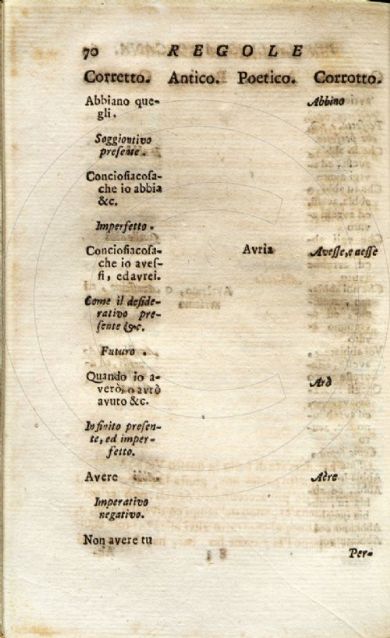 70 REGOLE
Corretto. Antico. Poetico. Corrotto.
Abbiano que- Abbino
gli.
Soggiontivo
preſente.
Conciofiacoſa-
che io abbia
&c.
Imperfetto.
Conciofiacoſa- Avria Aveſſe, e aeſſe
che io aveſ-
ſi, ed avrei.
Come il deſide-
rativo pre-
ſente &c.
Futuro.
Quando io a- Arò
verò, o avrò
avuto &c.
Infinito preſen-
te, ed imper-
fetto.
Avere Aère
Imperativo
negativo.
Non avere tu
Per-